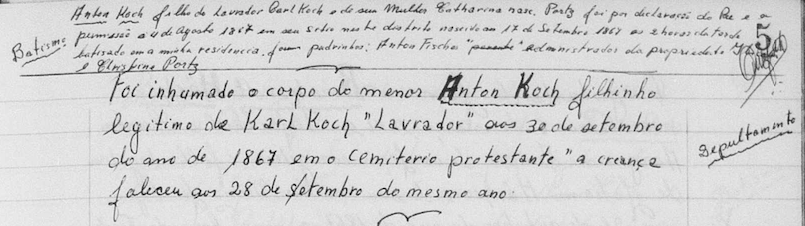 Anton Koch filho do Lavrador Carl Koch e de sua Mulher Catharina nasc. Portz foi por declaração do Pae e a
4 de Agosto 1867 em seu Sitio neste districto nascido an 17 de Setembro 1867 as 2 horas da tarde
Batismo
batisado em a minha residencia, foram padrinhos: Anton Fischer "presente" administrador da propriedade
e Christine Portz
5
Foi inhumado o corpo do menor Anton Koch filhinho
legitimo de Karl Koch "Lavrador" aos 30 de setembro
do ano de 1867 em o cemiterio protestante "a creança
faleceu aos 28 de setembro do mesmo ano.
Sepultamento